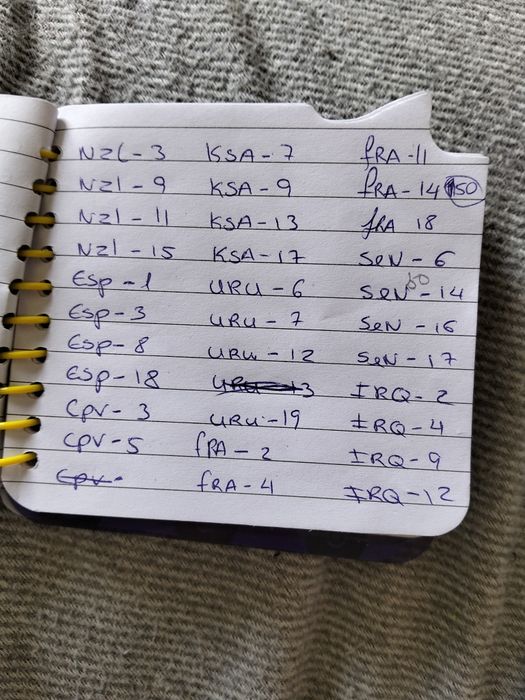 NZL - 3 KSA - 7 fRA - 11
NZl - 9 KSA - 9 fRA - 14 150
NZl - 11 KSA - 13 fRA 18
NZl - 15 KSA - 17 SeN - 6
Esp - 1 URU - 6 SeN - 14
Esp - 3 URU - 7 SeN - 16
Esp - 8 URU - 12 SeN - 17
Esp - 18 IRQ - 2
CPV - 3 URU - 19 IRQ - 4
CPV - 5 fRA - 2 IRQ - 9
Cpv - fRA - 4 IRQ - 12